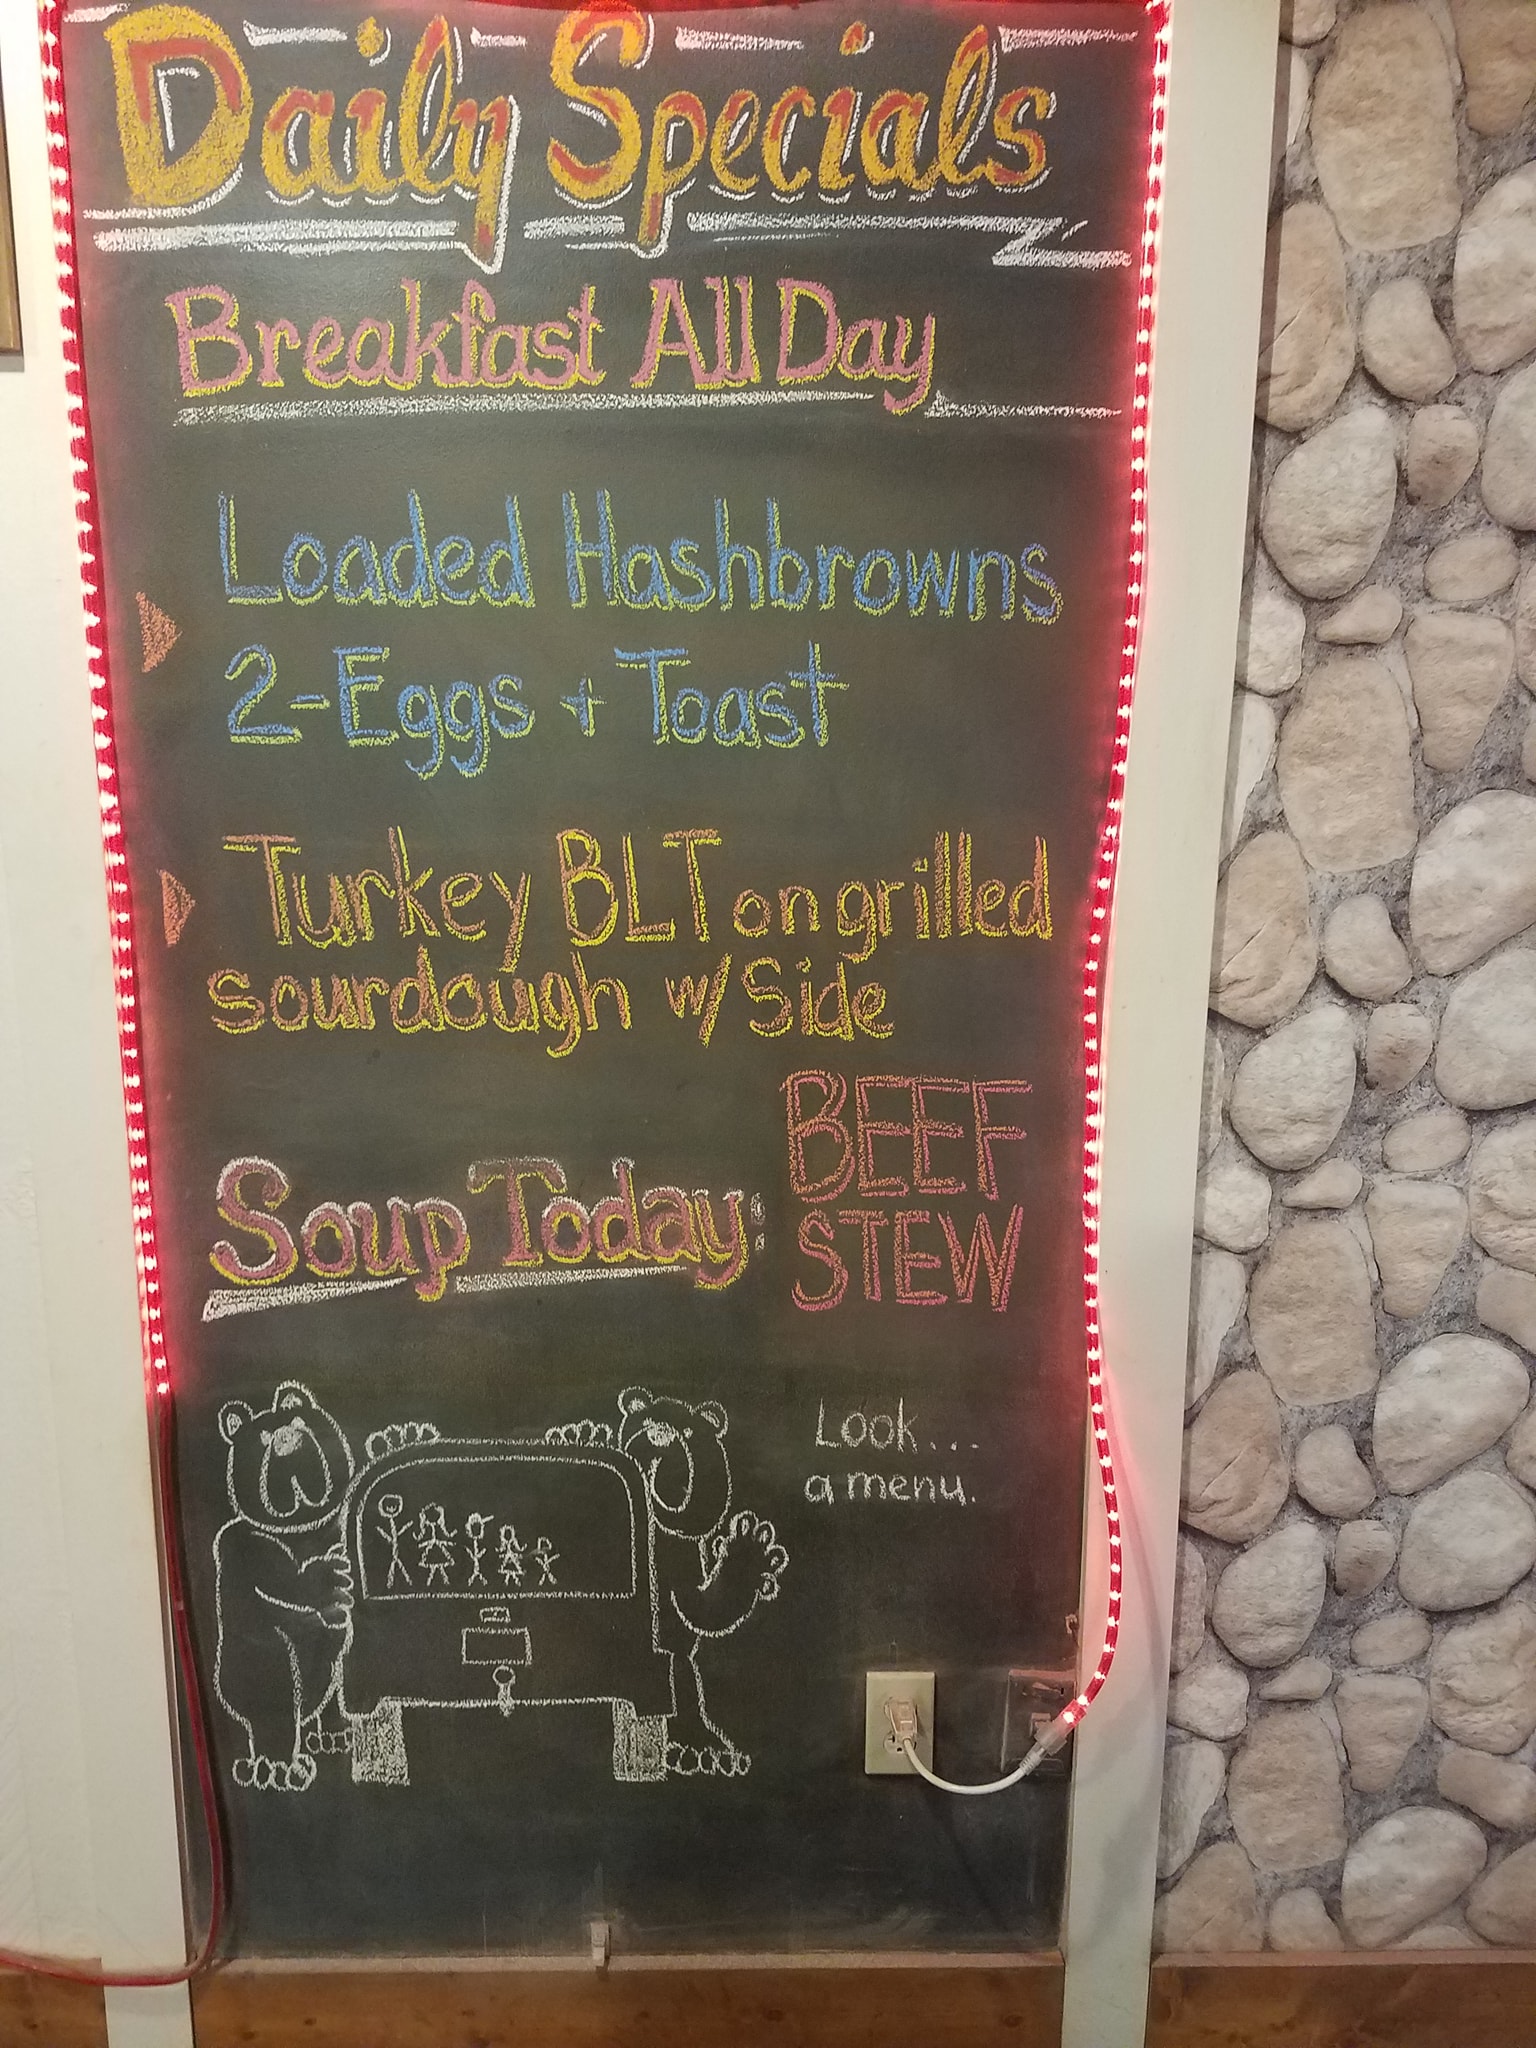 Daily Specials
Breakfast All Day
Loaded Hashbrowns
2-Eggs + Toast
Turkey BLT on grilled
sourdough w/ Side
Soup Today:
BEEF
STEW
Look...
a menu.